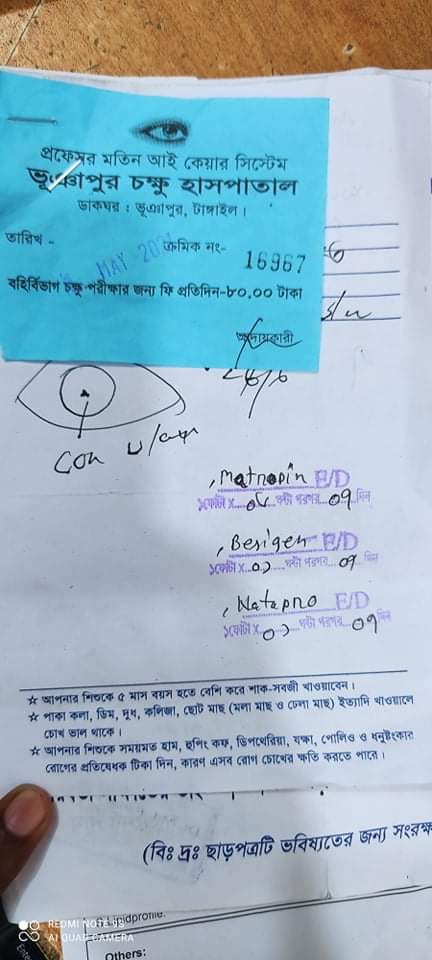 প্রফেসর মতিন আই কেয়ার সিস্টেম
ভূঞাপুর চক্ষু হাসপাতাল
ডাকঘর : ভূঞাপুর, টাঙ্গাইল।
তারিখ -
MAY
ক্রমিক নং-
16967
বহির্বিভাগ চক্ষু পরীক্ষার জন্য ফি প্রতিদিন-৮০.০০ টাকা
আদায়কারী
E/D
১ফোটা x ঘন্টা পরপর ০৭ দিন
E/D
১ফোটা x ০১ ঘন্টা পরপর ০৭ দিন
Natapro E/D
১ফোটা x ০১ ঘন্টা পরপর ০৭ দিন
☆ আপনার শিশুকে ৫ মাস বয়স হতে বেশি করে শাক-সবজী খাওয়াবেন।
☆ পাকা কলা, ডিম, দুধ, কলিজা, ছোট মাছ (মলা মাছ ও ঢেলা মাছ) ইত্যাদি খাওয়ালে
চোখ ভাল থাকে।
☆ আপনার শিশুকে সময়মত হাম, হুপিং কফ, ডিপথেরিয়া, যক্ষা, পোলিও ও ধনুষ্টংকার
রোগের প্রতিষেধক টিকা দিন, কারণ এসব রোগ চোখের ক্ষতি করতে পারে।
(বিঃ দ্রঃ ছাড়পত্রটি ভবিষ্যতের জন্য
Lipidprofile.
Others:
REDMI NOTE 8
AI QUAD CAMERA